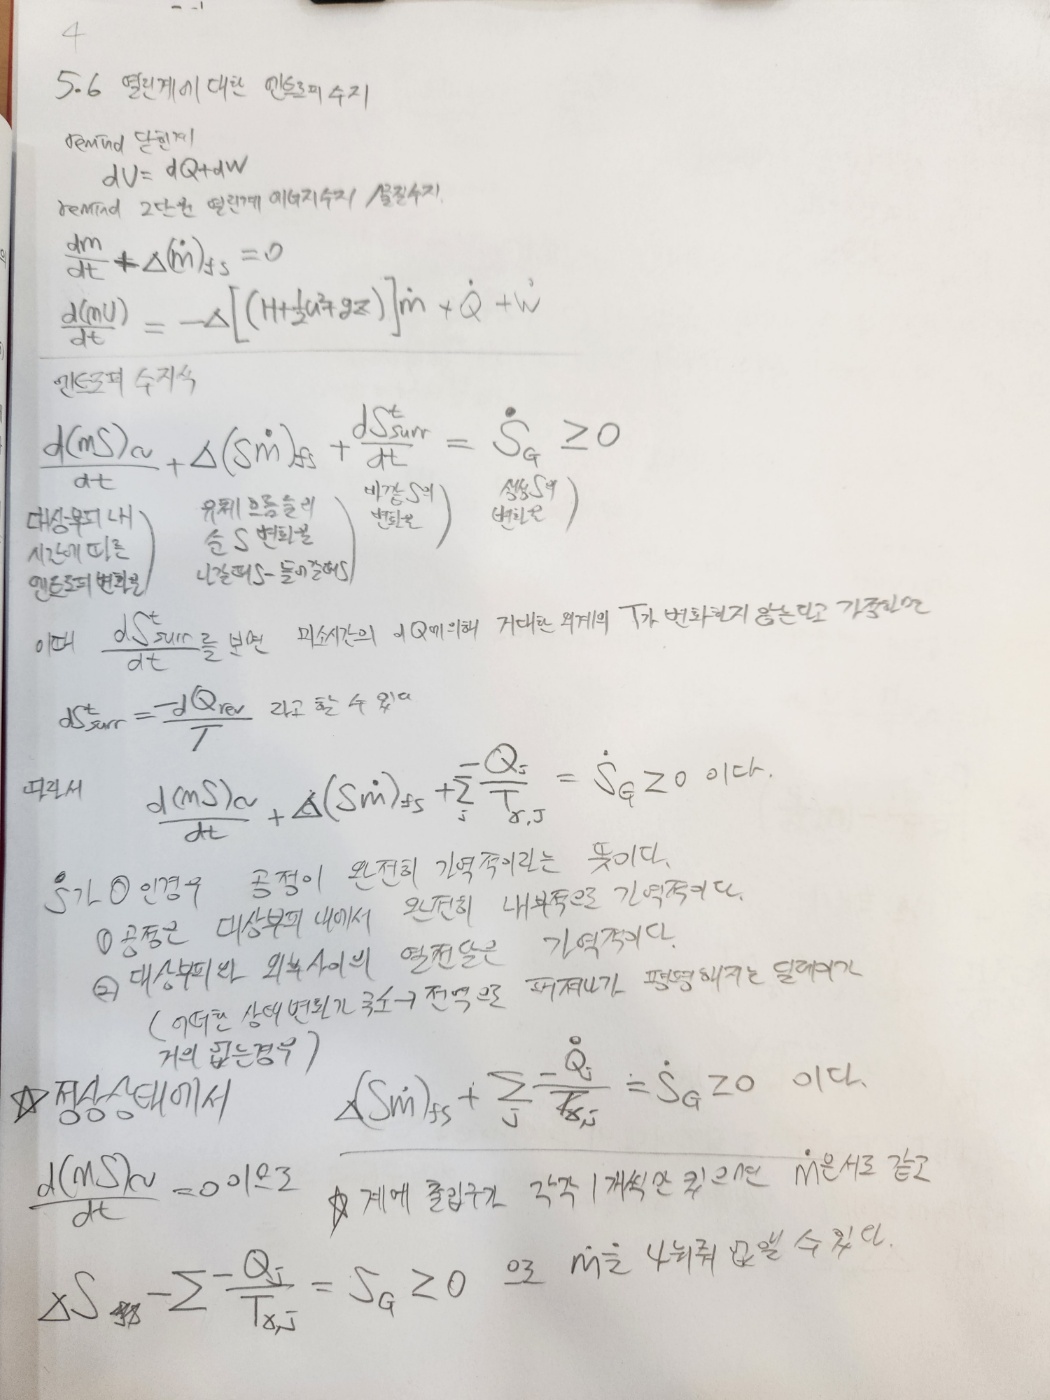 4
5.6 열린계에 대한 엔트로피 수지
remind 닫힌계
dU = dQ+dW
remind 2단원 열린계 에너지수지 / 물질수지.
dm/dt + Δ(ṁ)fs = 0
d(mU)/dt = -Δ[(H+½u²+gz)]ṁ + Q̇ + Ẇ
엔트로피 수지식
d(mS)cv/dt + Δ(Sṁ)fs + dSᵗsurr/dt = ṠG ≥ 0
대상부피 내 시간에 따른 엔트로피 변화율)
유체 흐름들의 순 S 변화율 나갈때S - 들어올때S)
바깥 S의 변화율)
생성 S의 변화율)
이때 dSᵗsurr/dt를 보면 미소시간의 dQ에 의해 거대한 외계의 T가 변화하지 않는다고 가정하면
dSᵗsurr = -dQrev/T 라고 할 수 있다
따라서 d(mS)cv/dt + Δ(Sṁ)fs + Σj -Qj/Tσ,j = ṠG ≥ 0 이다.
Ṡ가 0인경우 공정이 완전히 가역적이라는 뜻이다.
① 공정은 대상부피 내에서 완전히 내부적으로 가역적이다.
② 대상부피와 외부사이의 열전달은 가역적이다.
(어떠한 상태변화가 국소→전역으로 퍼져나가 평형해지는 딜레이가
거의 없는경우)
☆정상상태에서 Δ(Sṁ)fs + Σj -Q̇j/Tσ,j = ṠG ≥ 0 이다.
d(mS)cv/dt = 0 이므로
☆ 계에 출입구가 각각 1개씩만 있으면 ṁ은 서로 같고
ΔS - Σ -Qj/Tσ,j = SG ≥ 0 으로 ṁ을 나눠줘 없앨 수 있다.